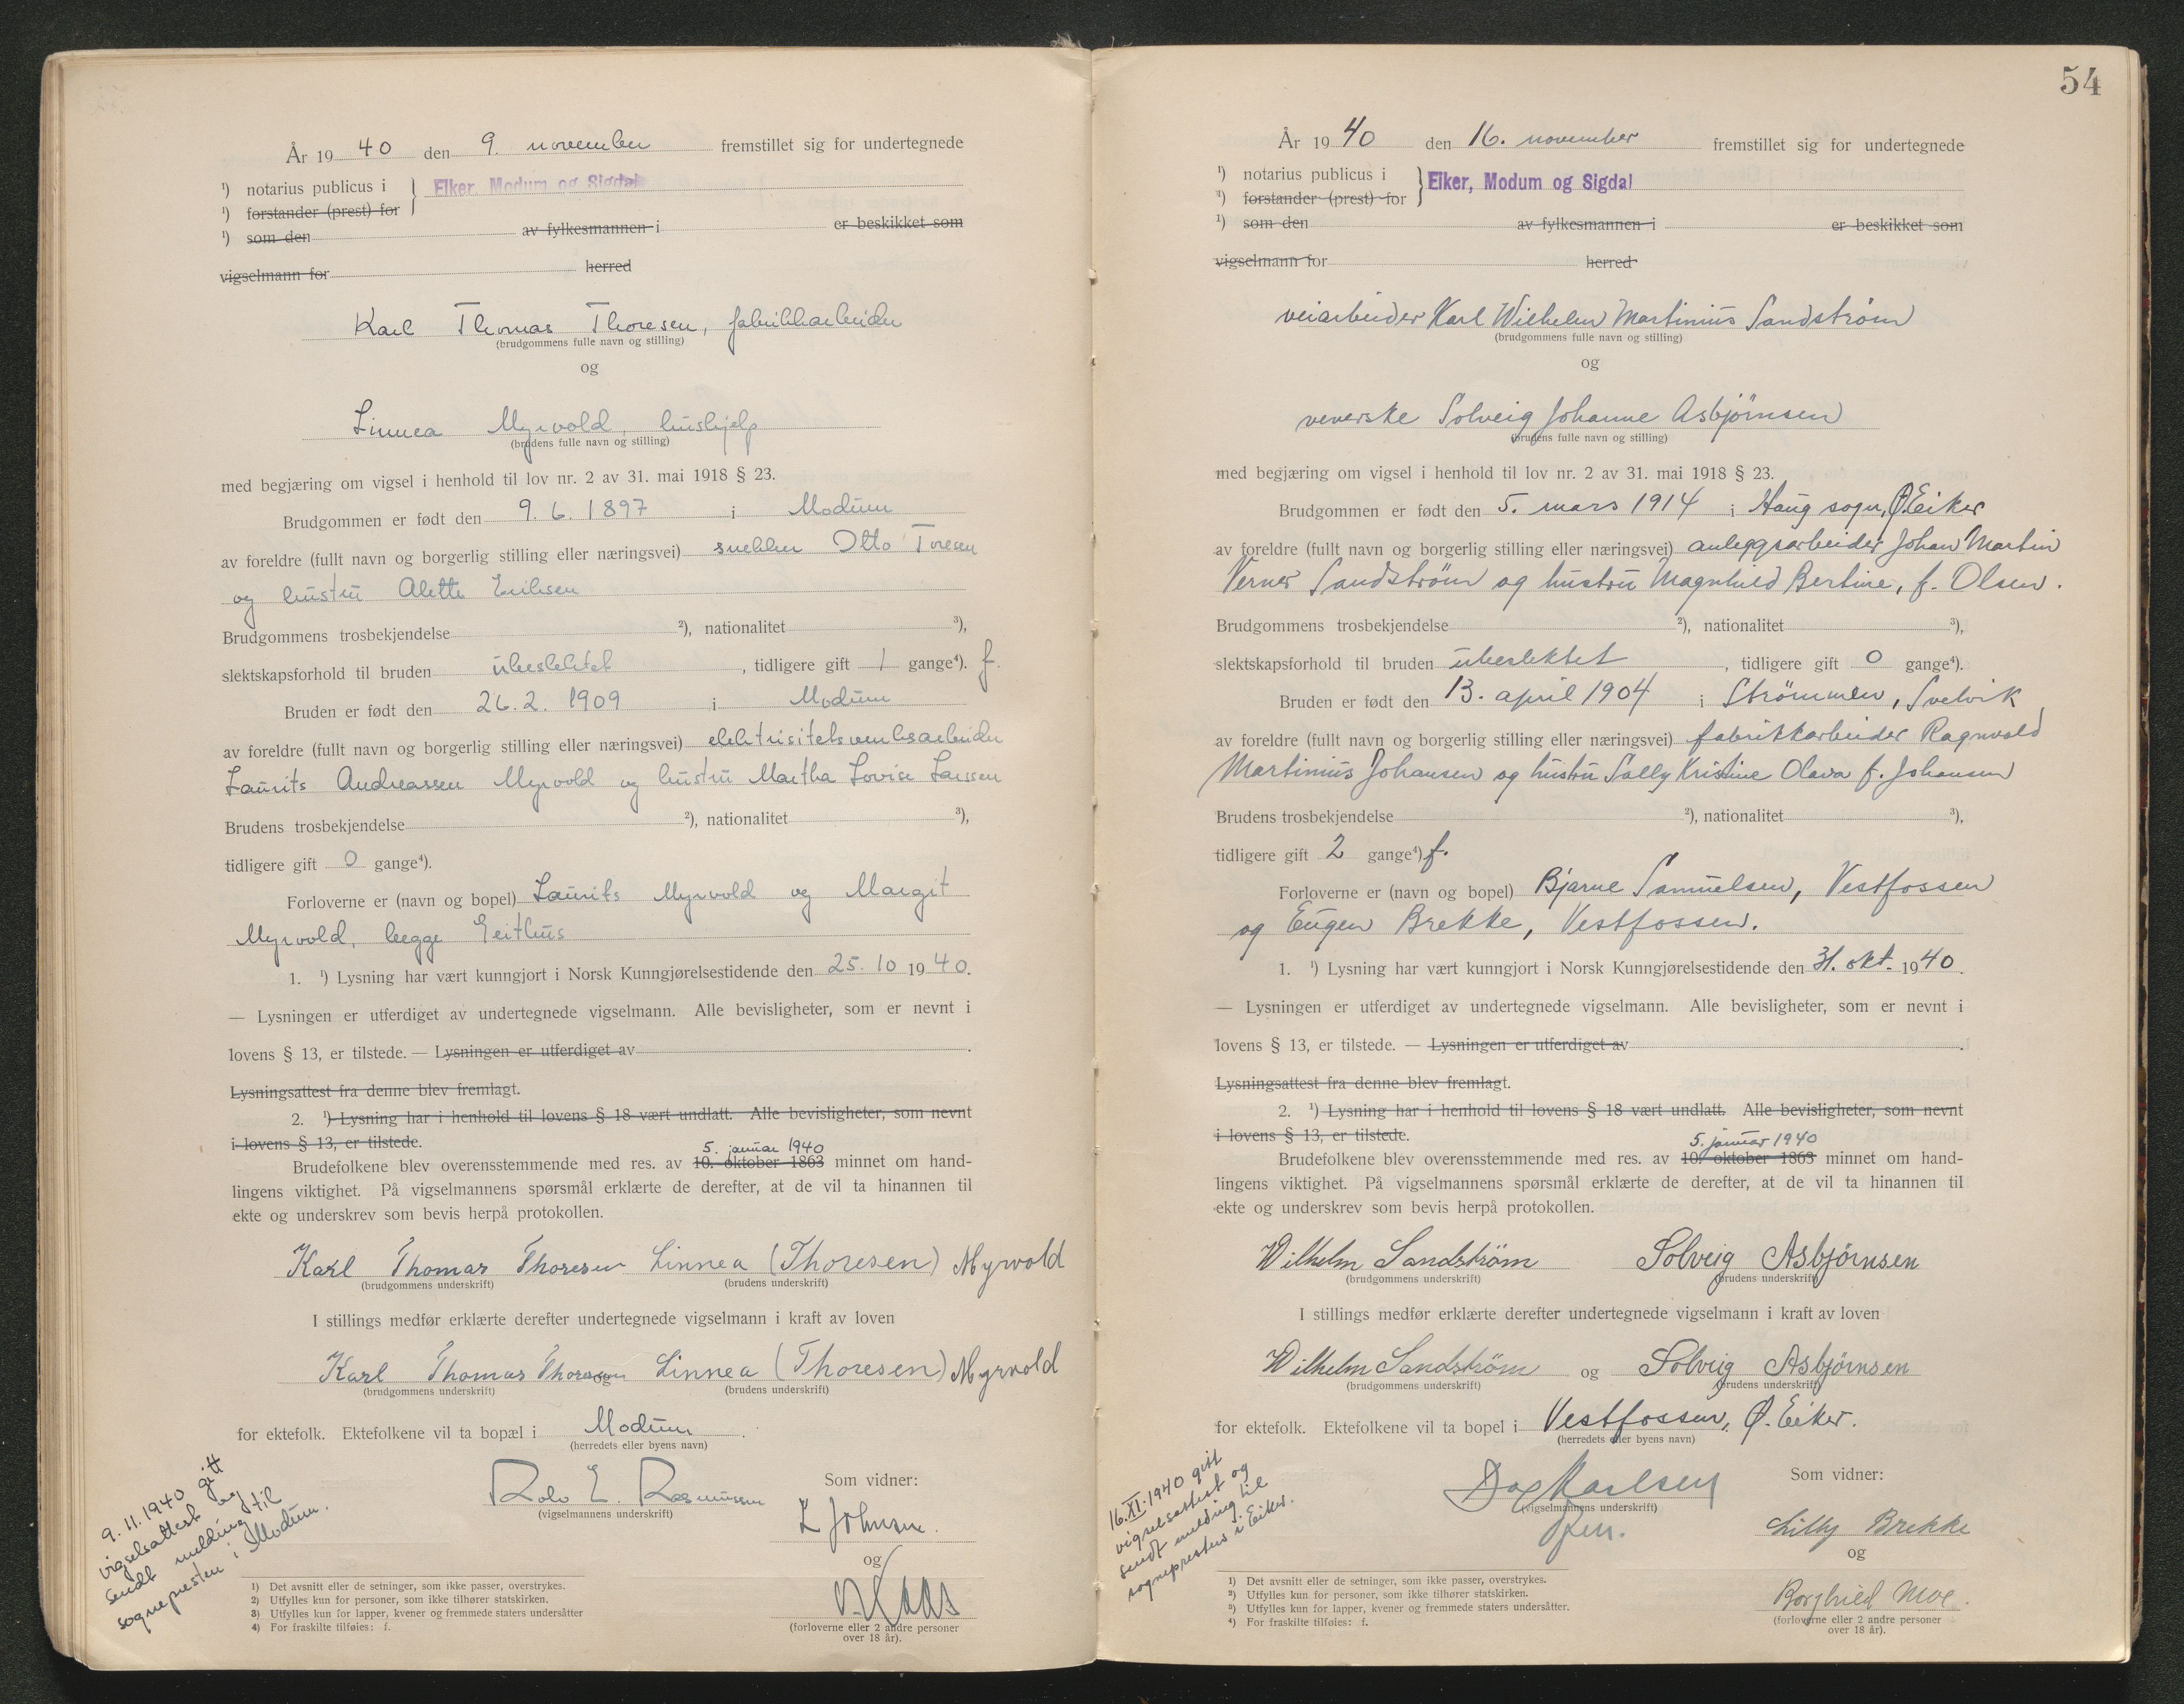 År 19 40 den 9. november fremstillet sig for undertegnede
¹) notarius publicus i } Eiker, Modum og Sigdal
¹) forstander (prest) for
¹) som den av fylkesmannen i er beskikket som
vigselmann for herred
Karl Thomas Thoresen, fabrikkarbeider
(brudgommens fulle navn og stilling)
og
Linnea Myrvold, hushjelp
(brudens fulle navn og stilling)
med begjæring om vigsel i henhold til lov nr. 2 av 31. mai 1918 § 23.
Brudgommen er født den 9. 6. 1897 i Modum
av foreldre (fullt navn og borgerlig stilling eller næringsvei) snekker Otto Toresen
og hustru Alette Eriksen
Brudgommens trosbekjendelse ²), nationalitet ³),
slektskapsforhold til bruden ubeslektet, tidligere gift 1 gange⁴). f.
Bruden er født den 26. 2. 1909 i Modum
av foreldre (fullt navn og borgerlig stilling eller næringsvei) elektrisitetsverksarbeider
Laurits Andreassen Myrvold og hustru Martha Lovise Larsen
Brudens trosbekjendelse ²), nationalitet ³),
tidligere gift 0 gange⁴).
Forloverne er (navn og bopel) Laurits Myrvold og Margit
Myrvold, begge Geithus
1. ¹) Lysning har vært kunngjort i Norsk Kunngjørelsestidende den 25. 10 19 40.
— Lysningen er utferdiget av undertegnede vigselmann. Alle bevisligheter, som er nevnt i
lovens § 13, er tilstede. — Lysningen er utferdiget av .
Lysningsattest fra denne blev fremlagt.
2. ¹) Lysning har i henhold til lovens § 18 vært undlatt. Alle bevisligheter, som nevnt
i lovens § 13, er tilstede.
5. januar 1940
Brudefolkene blev overensstemmende med res. av 10. oktober 1863 minnet om hand-
lingens viktighet. På vigselmannens spørsmål erklærte de derefter, at de vil ta hinannen til
ekte og underskrev som bevis herpå protokollen.
Karl Thomas Thoresen Linnea (Thoresen) Myrvold
(brudgommens underskrift) (brudens underskrift)
I stillings medfør erklærte derefter undertegnede vigselmann i kraft av loven
Karl Thomas Thoresen og Linnea (Thoresen) Myrvold
(brudgommens underskrift) (brudens underskrift)
for ektefolk. Ektefolkene vil ta bopæl i Modum.
(herredets eller byens navn)
Rolv E. Rasmussen
(vigselmannens underskrift)
Som vidner:
L Johnsen.
og
(forloverne eller 2 andre personer
over 18 år).
9. 11. 1940 gitt
vigselsattest og
sendt melding til
sognepresten i Modum.
1) Det avsnitt eller de setninger, som ikke passer, overstrykes.
2) Utfylles kun for personer, som ikke tilhører statskirken.
3) Utfylles kun for lapper, kvener og fremmede staters undersåtter
4) For fraskilte tilføies: f.
54
År 19 40 den 16. november fremstillet sig for undertegnede
¹) notarius publicus i } Eiker, Modum og Sigdal
¹) forstander (prest) for
¹) som den av fylkesmannen i er beskikket som
vigselmann for herred
veiarbeider Karl Wilhelm Martinius Sandstrøm
(brudgommens fulle navn og stilling)
og
veverske Solveig Johanne Asbjørnsen
(brudens fulle navn og stilling)
med begjæring om vigsel i henhold til lov nr. 2 av 31. mai 1918 § 23.
Brudgommen er født den 5. mars 1914 i Haug sogn, Ø. Eiker
av foreldre (fullt navn og borgerlig stilling eller næringsvei) anleggsarbeider Johan Martin
Verner Sandstrøm og hustru Magnhild Bertine, f. Olsen.
Brudgommens trosbekjendelse ²), nationalitet ³),
slektskapsforhold til bruden ubeslektet, tidligere gift 0 gange⁴).
Bruden er født den 13. april 1904 i Strømmen, Svelvik
av foreldre (fullt navn og borgerlig stilling eller næringsvei) fabrikkarbeider Ragnvald
Martinius Johansen og hustru Sally Kristine Olava f. Johansen
Brudens trosbekjendelse ²), nationalitet ³),
tidligere gift 2 gange⁴) f.
Forloverne er (navn og bopel) Bjarne Samuelsen, Vestfossen
og Eugen Brekke, Vestfossen.
1. ¹) Lysning har vært kunngjort i Norsk Kunngjørelsestidende den 31. okt. 19 40.
— Lysningen er utferdiget av undertegnede vigselmann. Alle bevisligheter, som er nevnt i
lovens § 13, er tilstede. — Lysningen er utferdiget av .
Lysningsattest fra denne blev fremlagt.
2. ¹) Lysning har i henhold til lovens § 18 vært undlatt. Alle bevisligheter, som nevnt
i lovens § 13, er tilstede.
5. januar 1940
Brudefolkene blev overensstemmende med res. av 10. oktober 1863 minnet om hand-
lingens viktighet. På vigselmannens spørsmål erklærte de derefter, at de vil ta hinannen til
ekte og underskrev som bevis herpå protokollen.
Wilhelm Sandstrøm Solveig Asbjørnsen
(brudgommens underskrift) (brudens underskrift)
I stillings medfør erklærte derefter undertegnede vigselmann i kraft av loven
Wilhelm Sandstrøm og Solveig Asbjørnsen
(brudgommens underskrift) (brudens underskrift)
for ektefolk. Ektefolkene vil ta bopel i Vestfossen, Ø. Eiker.
(herredets eller byens navn)
Dag Karlsen
(vigselmannens underskrift)
Som vidner:
Lilly Brekke
og
Borghild Moe.
(forloverne eller 2 andre personer
over 18 år).
16. XI. 1940 gitt
vigselsattest og
sendt melding til
sogneprestens i Eiker.
1) Det avsnitt eller de setninger, som ikke passer, overstrykes.
2) Utfylles kun for personer, som ikke tilhører statskirken.
3) Utfylles kun for lapper, kvener og fremmede staters undersåtter.
4) For fraskilte tilføies: f.